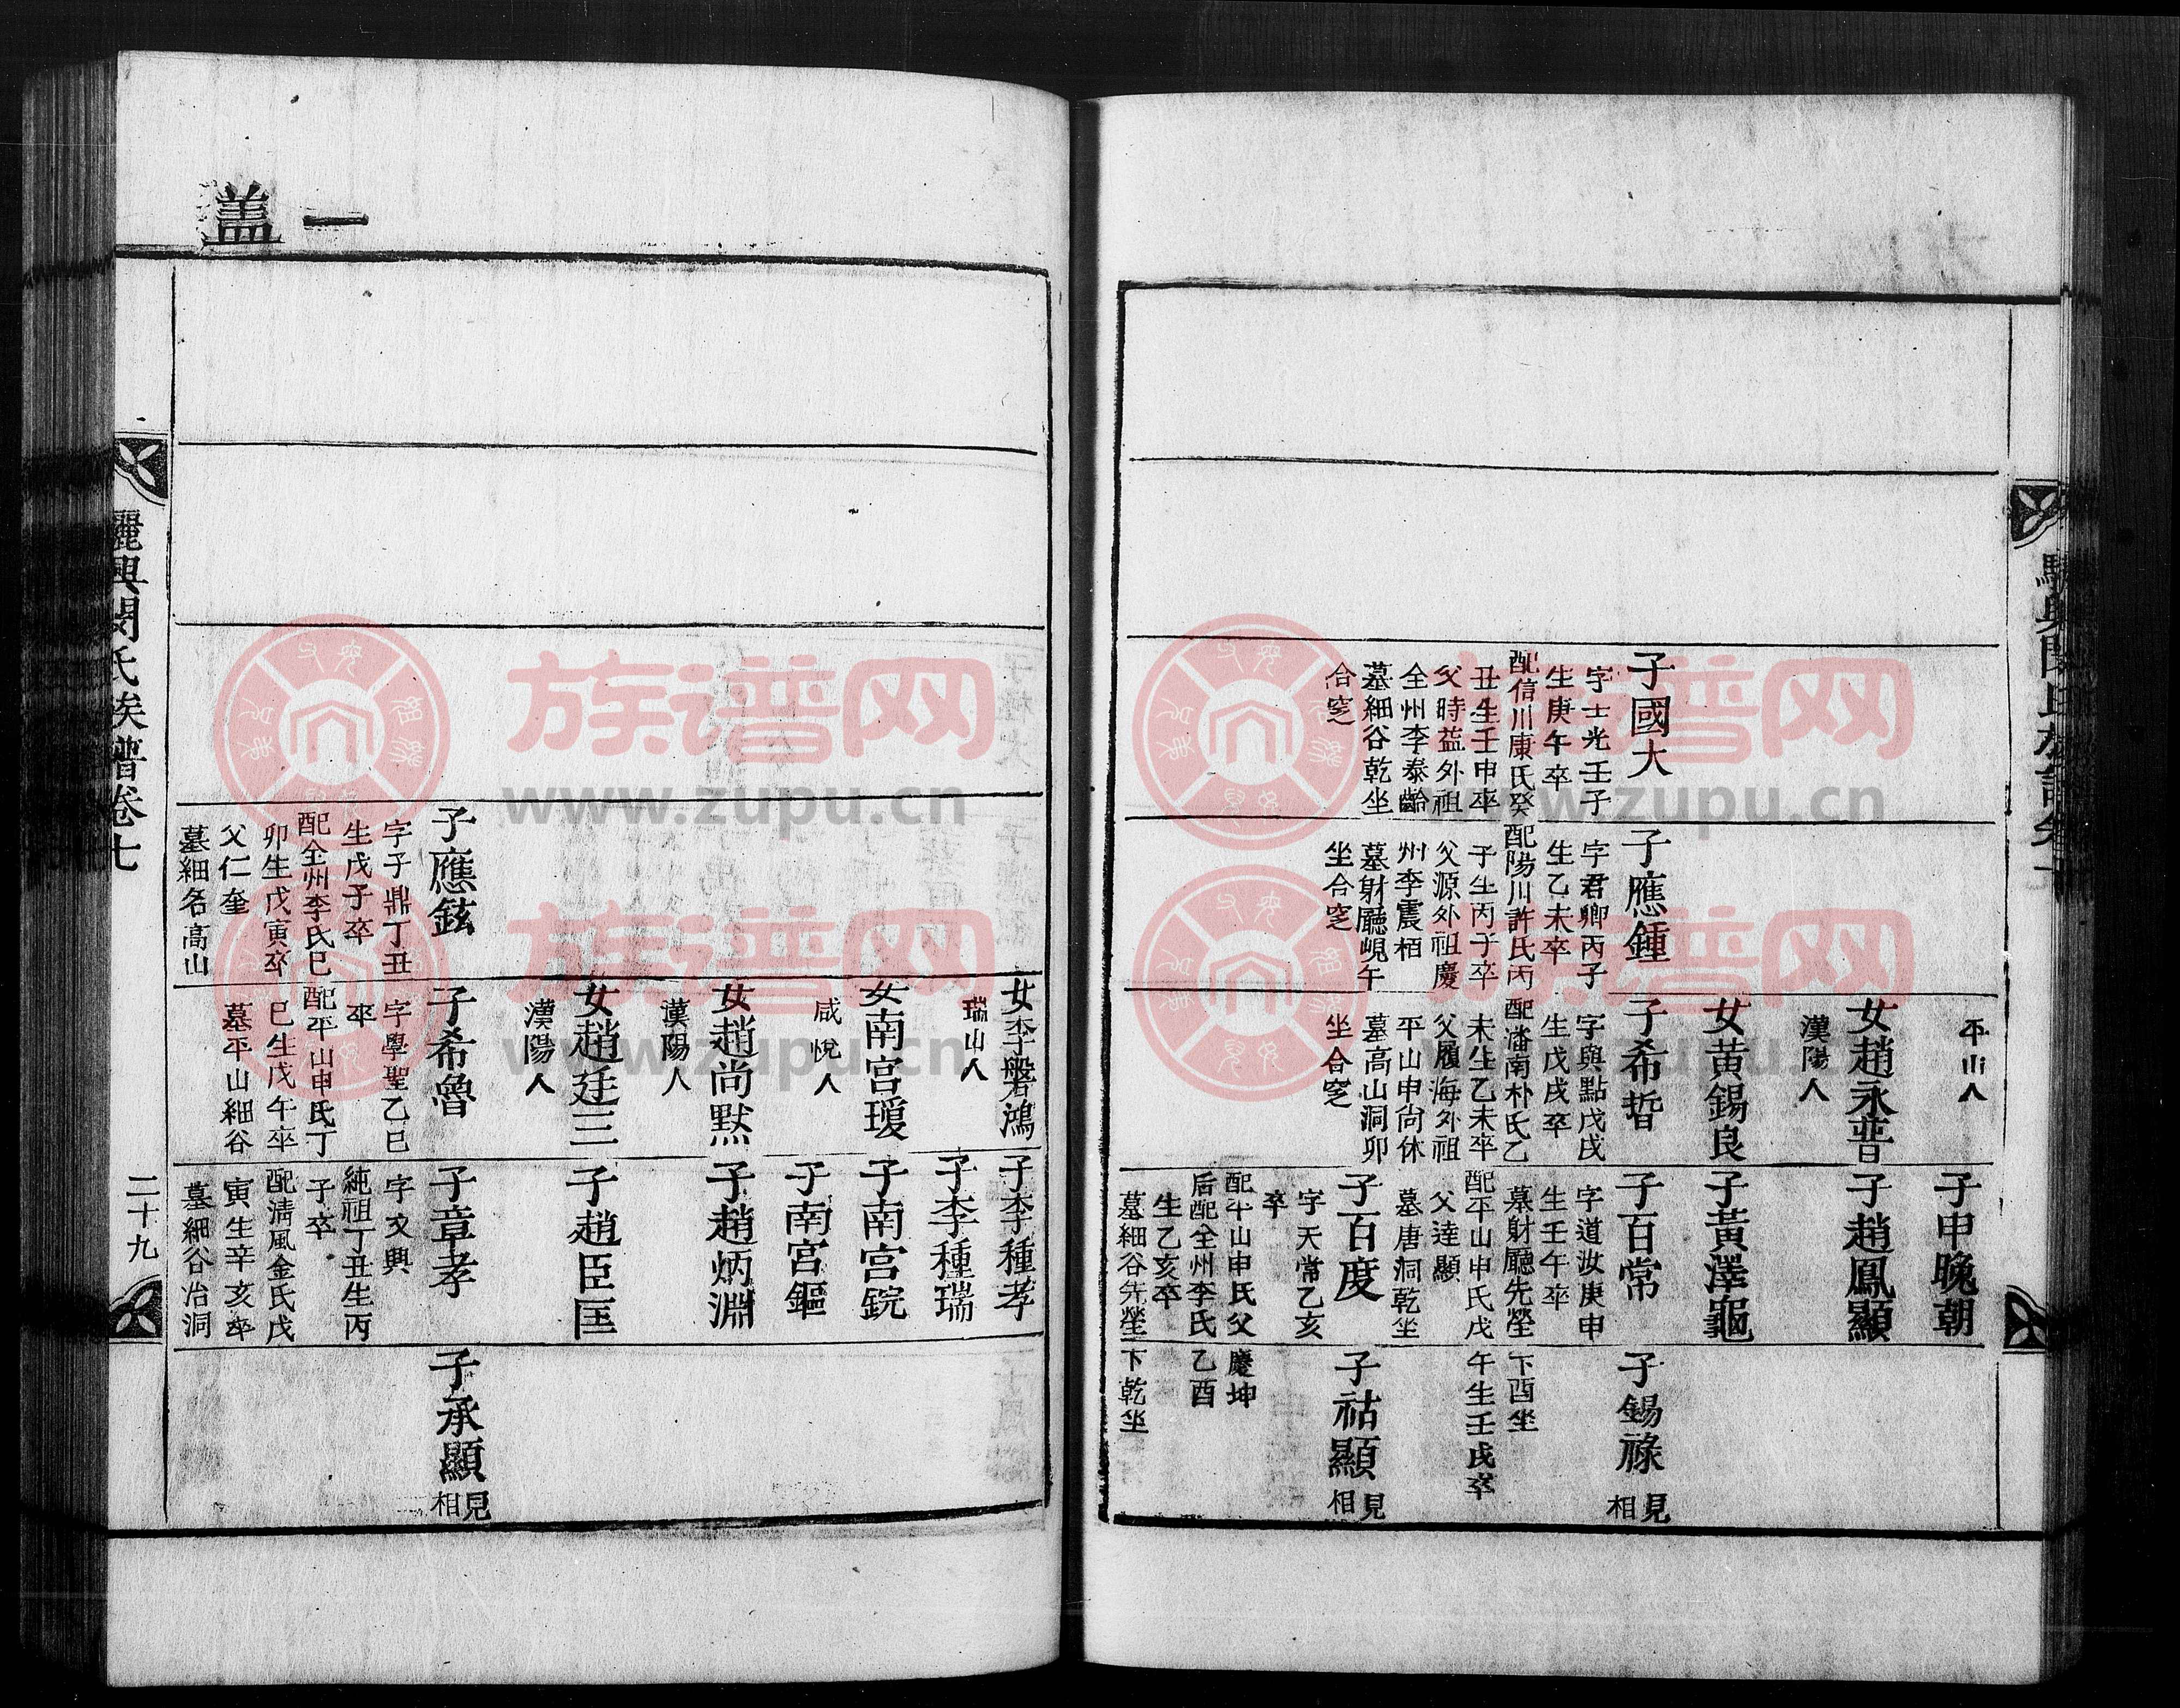 驪興閔氏族譜卷七
子國大
字士光壬子
生庚午卒
配信川康氏癸
丑生壬申卒
父時益外祖
全州李泰齡
墓細谷乾坐
合窆
子應鍾
字君卿丙子
生乙未卒
配陽川許氏丙
子生丙子卒
父源外祖慶
州李震栢
墓射廳峴午
坐合窆
平山人
女趙永普
漢陽人
女黃錫良
子希哲
字與點戊戌
生戊戌卒
配潘南朴氏乙
未生乙未卒
父履海外祖
平山申尚休
墓高山洞卯
坐合窆
子申晚朝
子趙鳳顯
子黃澤龜
子百常
字道汝庚申
生壬午卒
墓射廳先塋
下酉坐
配平山申氏戊
午生壬戌卒
父達顯
墓唐洞乾坐
子百度
字天常乙亥
卒
配平山申氏父
慶坤
后配全州李氏
乙酉
生乙亥卒
墓細谷先塋
下乾坐
子錫祿
見相
子祜顯
見相
一
盖
子應鉉
字子鼎丁丑
生戊子卒
配全州李氏巳
卯生戊寅卒
父仁奎
墓細名高山
女李磐鴻
瑞山人
女南宮瑗
咸悅人
女趙尚默
漢陽人
女趙廷三
漢陽人
子希魯
字學聖乙巳
卒
配平山申氏丁
巳生戊午卒
墓平山細谷
子李種孝
子李種瑞
子南宮鋎
子南宮鏂
子趙炳淵
子趙臣匡
子章孝
字文興
純祖丁丑生丙
子卒
配淸風金氏戊
寅生辛亥卒
墓細谷冶洞
子承顯
見相
驪興閔氏族譜卷七
二十九
族谱网
www.zupu.cn
族谱网
www.zupu.cn
族谱网
www.zupu.cn
族谱网
www.zupu.cn